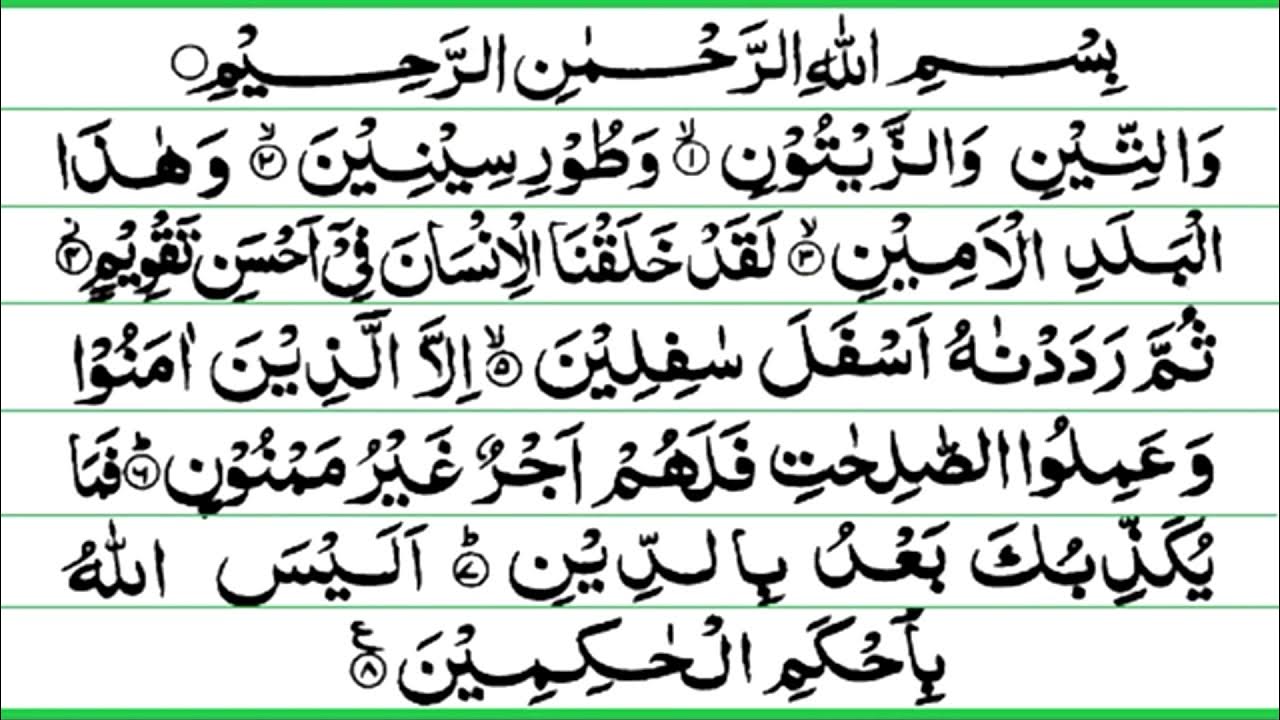 بِسْمِ اللّٰهِ الرَّحْمٰنِ الرَّحِيْمِ ۝
وَالتِّيْنِ وَالزَّيْتُوْنِ ۙ‏﴿۱﴾ وَطُوْرِ سِيْنِيْنَ ۙ‏﴿۲﴾ وَهٰذَا
الْبَلَدِ الْاَمِيْنِ ۙ‏﴿۳﴾ لَقَدْ خَلَقْنَا الْاِنْسَانَ فِىْٓ اَحْسَنِ تَقْوِيْمٍ ۫‏﴿۴﴾
ثُمَّ رَدَدْنٰهُ اَسْفَلَ سٰفِلِيْنَ ۙ‏﴿۵﴾ اِلَّا الَّذِيْنَ اٰمَنُوْا
وَعَمِلُوا الصّٰلِحٰتِ فَلَهُمْ اَجْرٌ غَيْرُ مَمْنُوْنٍ ؕ‏﴿۶﴾ فَمَا
يُكَذِّبُكَ بَعْدُ بِالدِّيْنِ ؕ‏﴿۷﴾ اَلَيْسَ اللّٰهُ
بِاَحْكَمِ الْحٰكِمِيْنَ ﴿۸﴾ ع